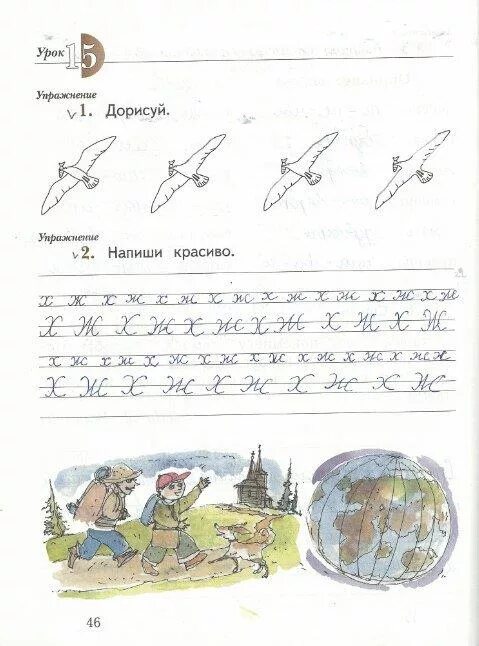 Урок 15
Упражнение
√1. Дорисуй.
Упражнение
√2. Напиши красиво.
х ж х ж х ж х ж х ж х ж х ж х ж
Х Ж Х Ж Х Ж Х Ж Х Ж Х Ж
х ж х ж х ж х ж х ж х ж х ж х ж ж
Х Ж Х Ж Х Ж Х Ж Х Ж
46